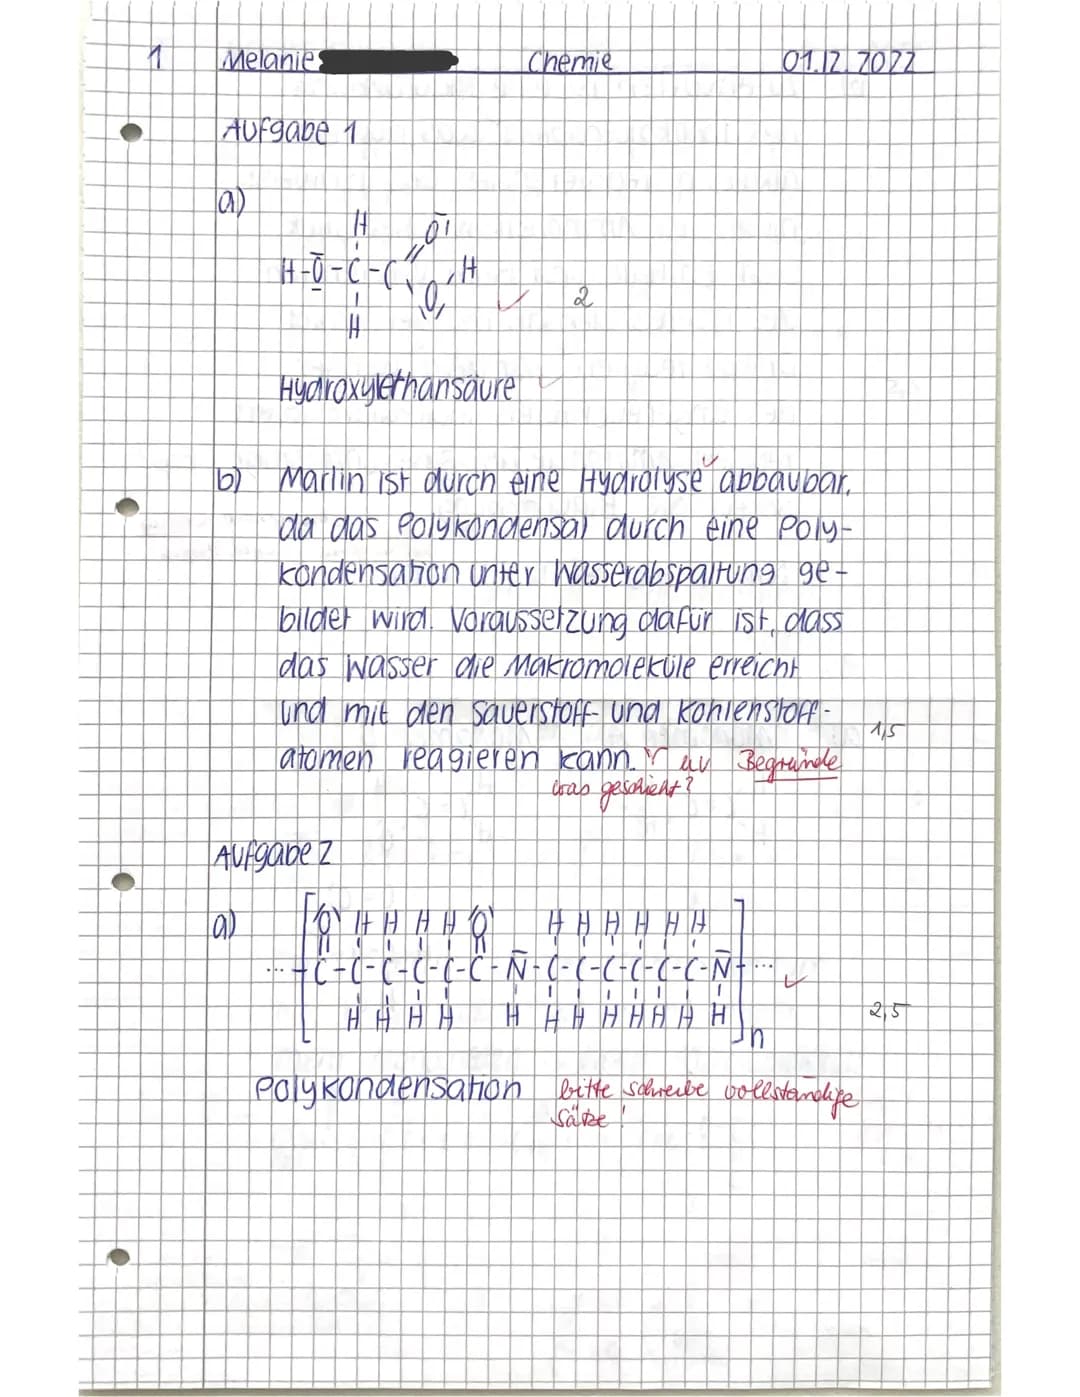 1 Melanie Chemie 01.12.2022
Aufgabe 1
a)
H O
H-O-C-C H
O
H
2
Hydroxylethansäure
b) Marlin ist durch eine Hydrolyse abbaubar,
da das Polykondensat durch eine Poly-
kondensation unter Wasserabspaltung ge-
bildet wird. Voraussetzung dafür ist, dass
das Wasser die Makromoleküle erreicht
und mit den Sauerstoff- und Kohlenstoff-
1,5
atomen reagieren kann. Begründe
was geschieht?
Aufgabe 2
a)
O H H H H O H H H H H H
... C-C-C-C-C-C-N-C-C-C-C-C-C-N ...
H H H H H H H H H H H H
n
2,5
Polykondensation bitte schreibe vollständige
Sätze!